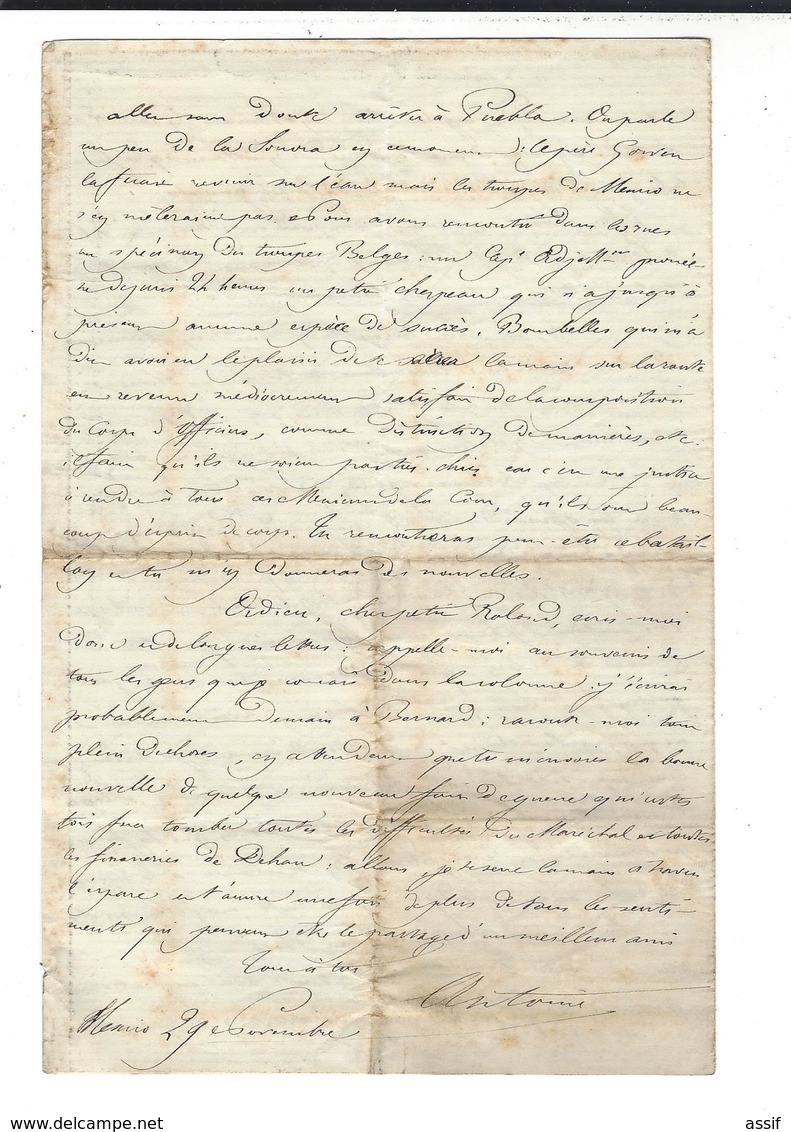 aller sans doute arriver à Puebla. On parle
un peu de la Sonora en ce moment : le père Gowen
la ferait revenir sur l'eau mais les troupes de Mexico ne
s'en mêleraient pas. Nous avons rencontré dans les rues
un spécimen des troupes Belges : un Capt Adj. promè-
ne depuis 24 heures un petit chapeau qui n'a jusqu'à
présent aucune espèce de succès. Bombelles qui m'a
dit avoir eu le plaisir de te serrer la main sur la route
est revenu médiocrement satisfait de la composition
du Corps d'officiers, comme distinction de manières, etc.
il faut qu'ils ne soient car c'est une justice
à rendre à tous ces Messieurs de la Cour, qu'ils ont beau-
coup d'esprit de corps. Tu rencontreras peut-être ce batail-
lon et tu m'en donneras des nouvelles.
Adieu, cher petit Roland, écris-moi
donc et de longues lettres : rappelle-moi au souvenir de
tous les gens que je connais dans la colonne. j'écrirai
probablement demain à Bernard ; raconte-moi tout
plein de choses, en attendant que tu m'envoies la bonne
nouvelle de quelque nouveau fait de guerre qui cette
fois fera tomber toutes les difficultés du Maréchal et toutes
les finasseries de : allons, je te serre la main à travers
l'espace et t'assure une fois de plus de tous les senti-
ments qui peuvent être le partage d'un meilleur ami
Tout à toi
Antoine
Mexico 29 Novembre
assif